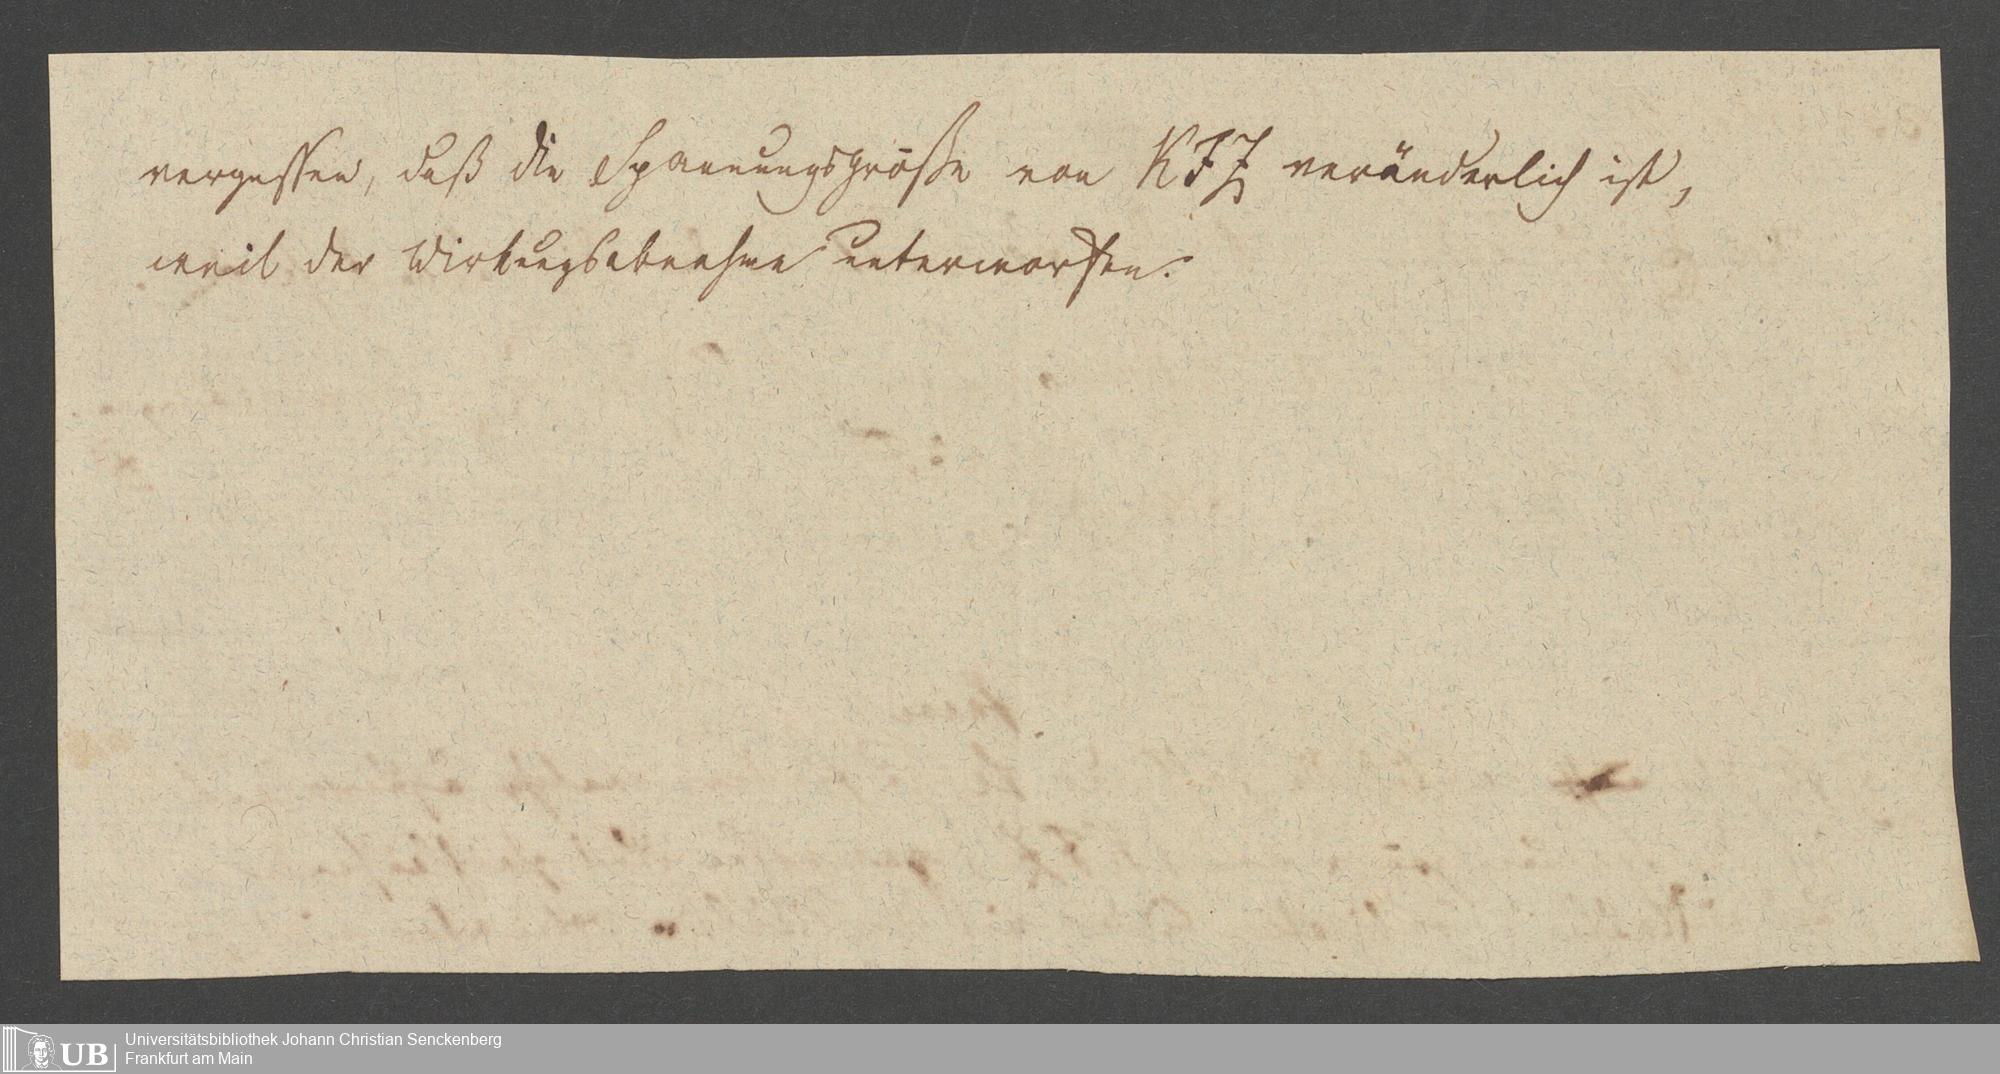 vergessen, daß die Spannungsgröße von KFZ veränderlich ist,
weil der Wirkungsabnahme unterworfen.
UB
Universitätsbibliothek Johann Christian Senckenberg
Frankfurt am Main